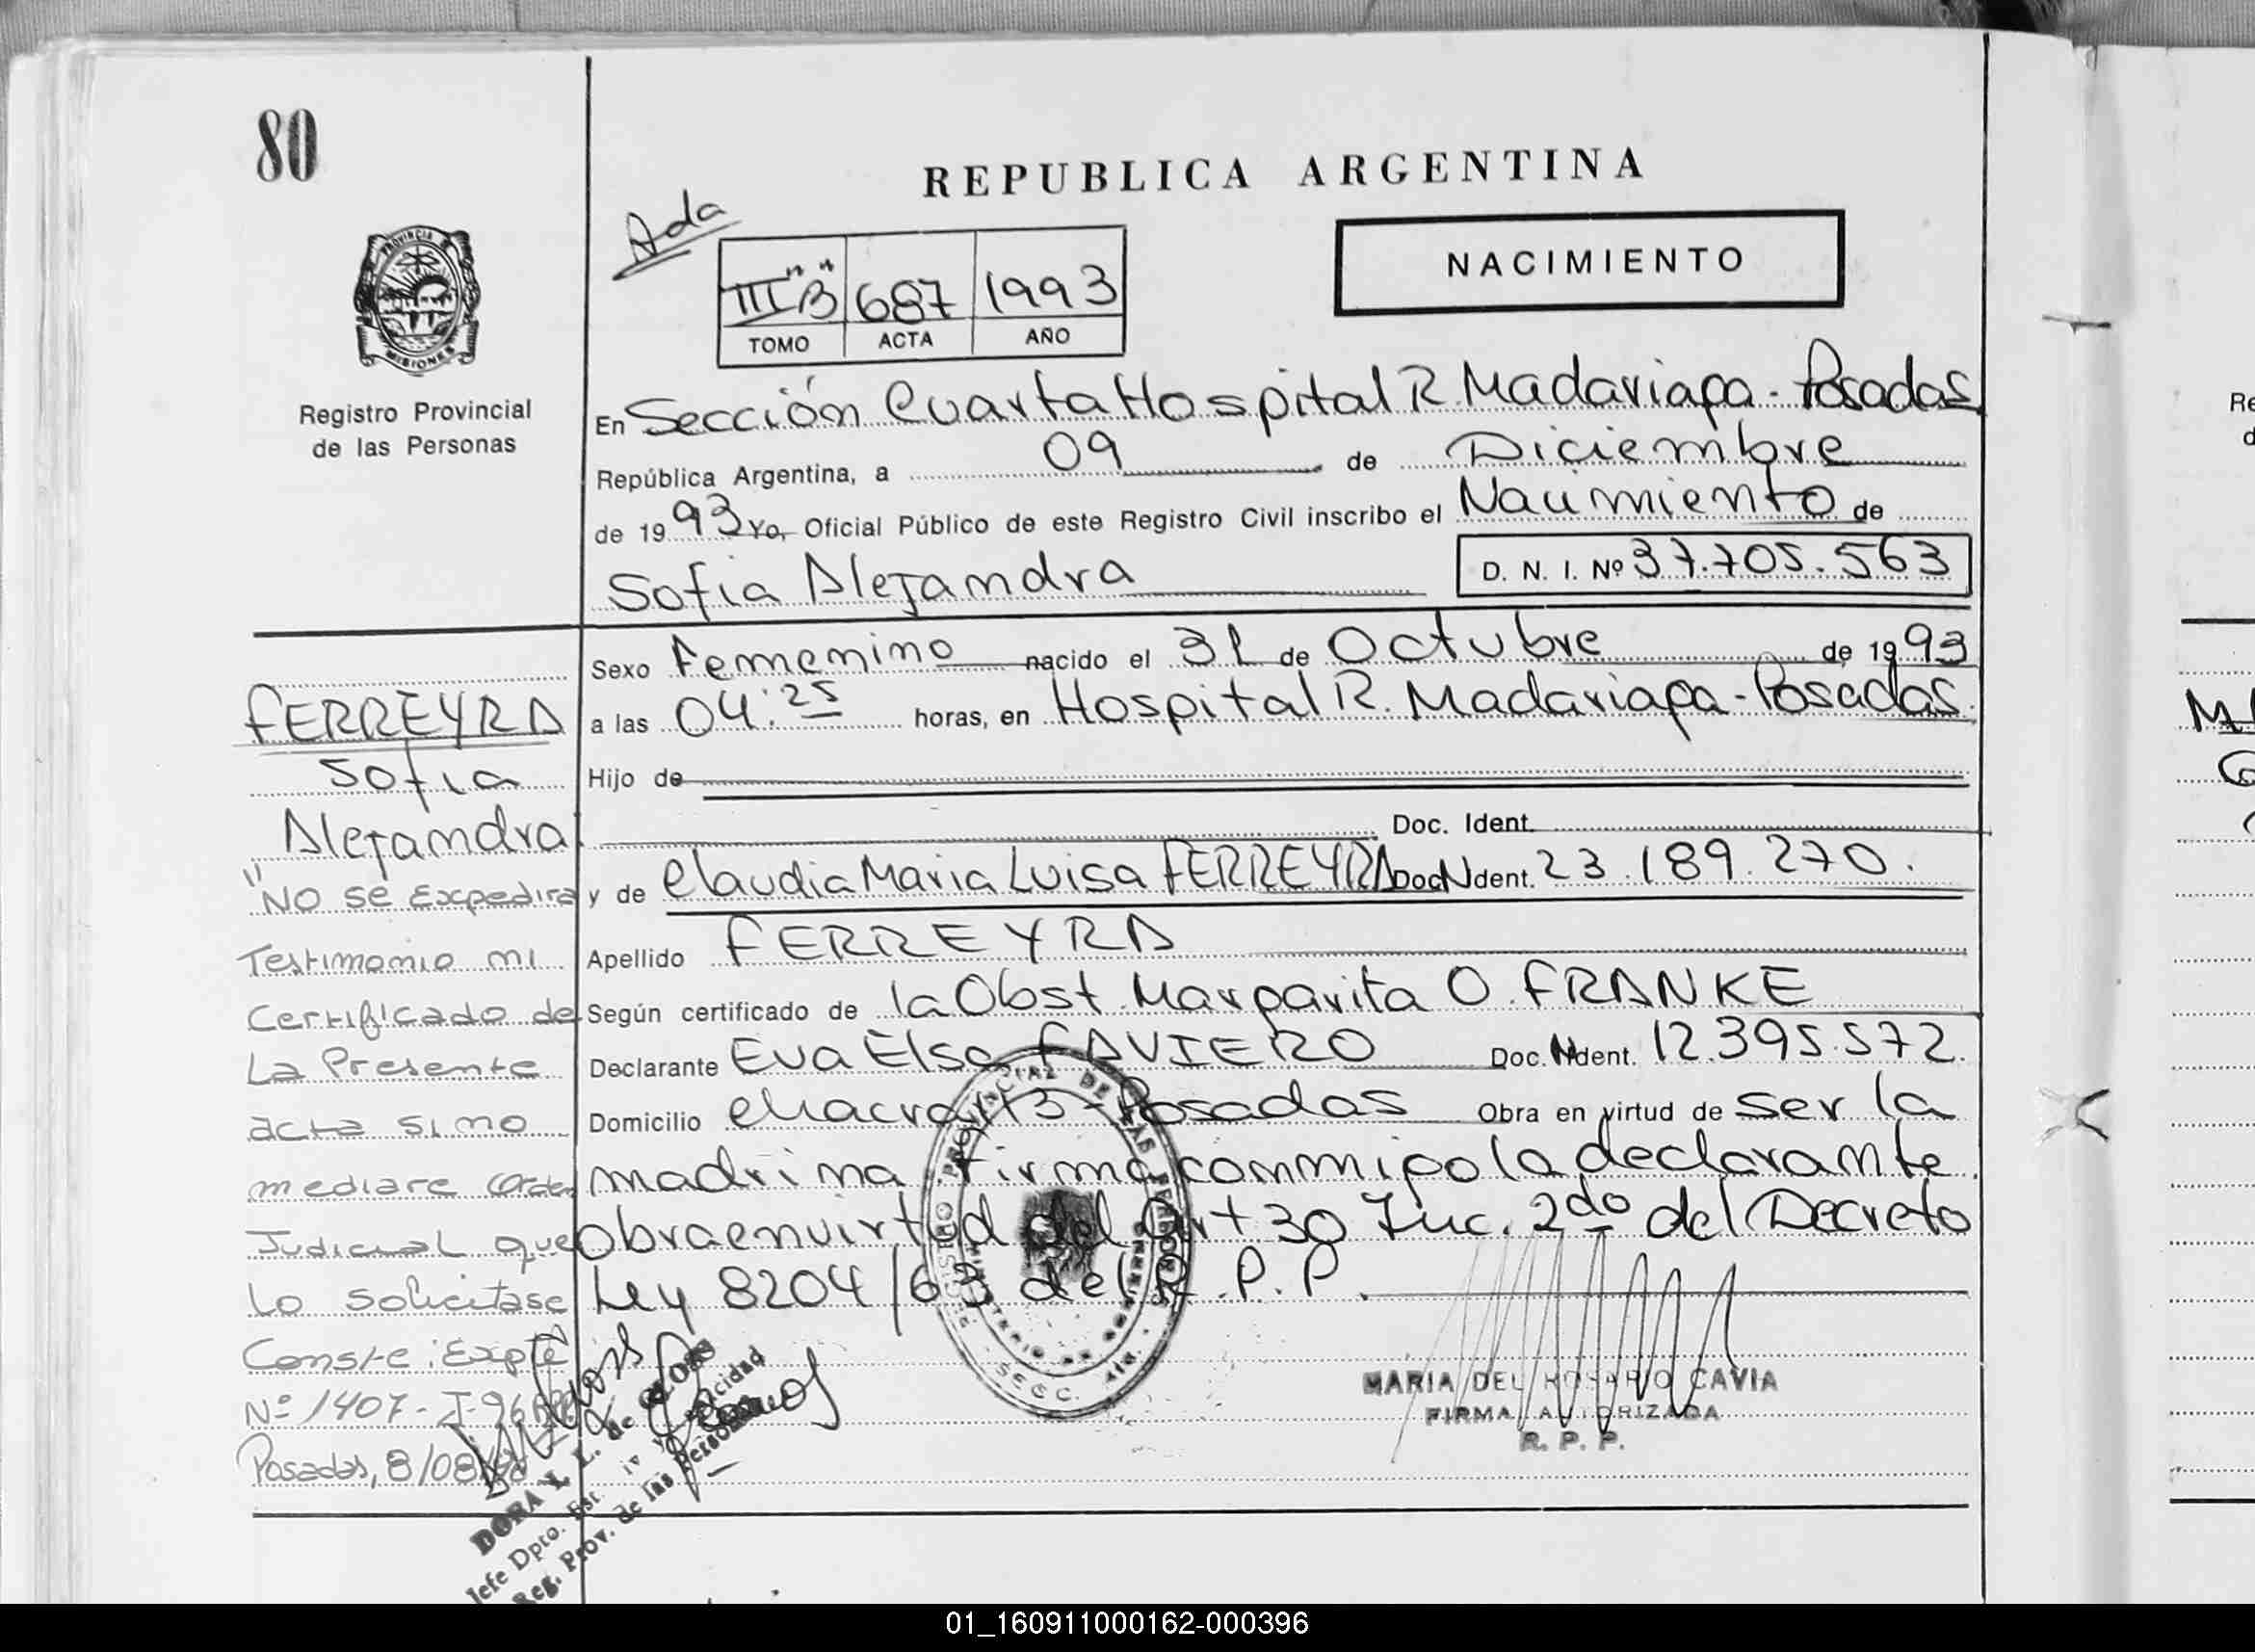 80
REPUBLICA ARGENTINA
Ada
NACIMIENTO
III "B" 687 1993
TOMO ACTA AÑO
PROVINCIA DE
MISIONES
Registro Provincial
de las Personas
En Sección Cuarta Hospital R. Madariaga - Posadas
República Argentina, a 09 de Diciembre
de 1993 Yo, Oficial Público de este Registro Civil inscribo el Nacimiento de
Sofia Alejandra D. N. I. Nº 37.705.563
Sexo Femenino nacido el 31 de Octubre de 1993
a las 04:25 horas, en Hospital R. Madariaga - Posadas.
Hijo de
Doc. Ident.
y de Claudia Maria Luisa FERREYRA Doc. Ident. 23.189.270.
Apellido FERREYRA
Según certificado de la Obst. Margarita O. FRANKE
Declarante Eva Elsa FAVIERO Doc. Ident. 12.395.572.
Domicilio Chacra 113 - Posadas Obra en virtud de ser la
madrina. Firma conmigo la declarante.
Obra en virtud del Art 30 Inc. 2do del Decreto
Ley 8204/63 del R.P.P.
FERREYRA
Sofia
Alejandra
"NO se Expedira
Testimonio ni
Certificado de
La Presente
acta si no
mediare Orden
Judicial que
Lo solicitase
Conste: Expte
Nº 1407-I-96
Posadas, 8/08
MARIA DEL ROSARIO CAVIA
FIRMA AUTORIZADA
R. P. P.
DORA
Jefe Dpto. Est.
Reg. Prov. de las Personas
01_160911000162-000396